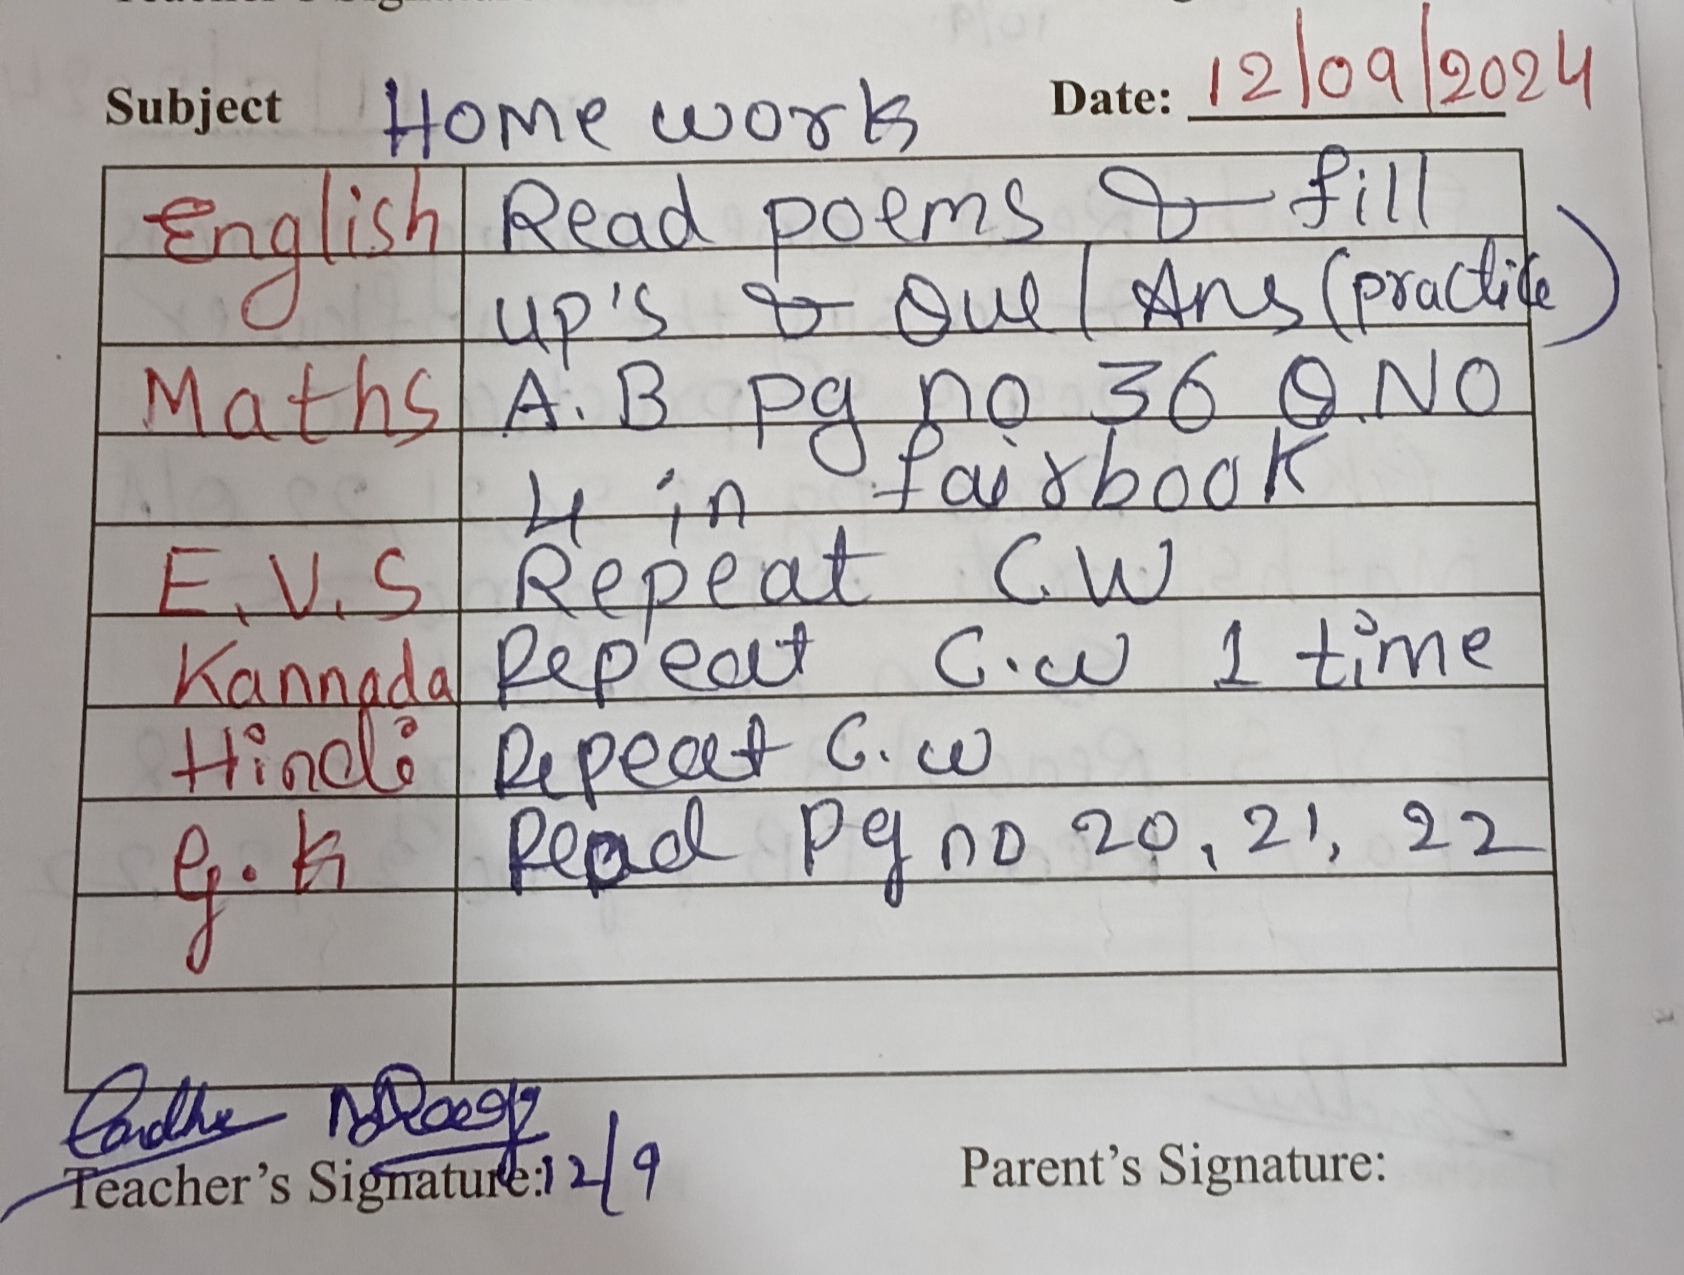 Subject Home work Date: 12/09/2024
English Read poems & fill
up's & Que/Ans (practice)
Maths A.B pg no 36 Q.NO
4 in fairbook
E.V.S Repeat C.W
Kannada Repeat C.w 1 time
Hindi Repeat C.w
G.k Read Pg no 20, 21, 22
Teacher's Signature: 12/9 Parent's Signature: